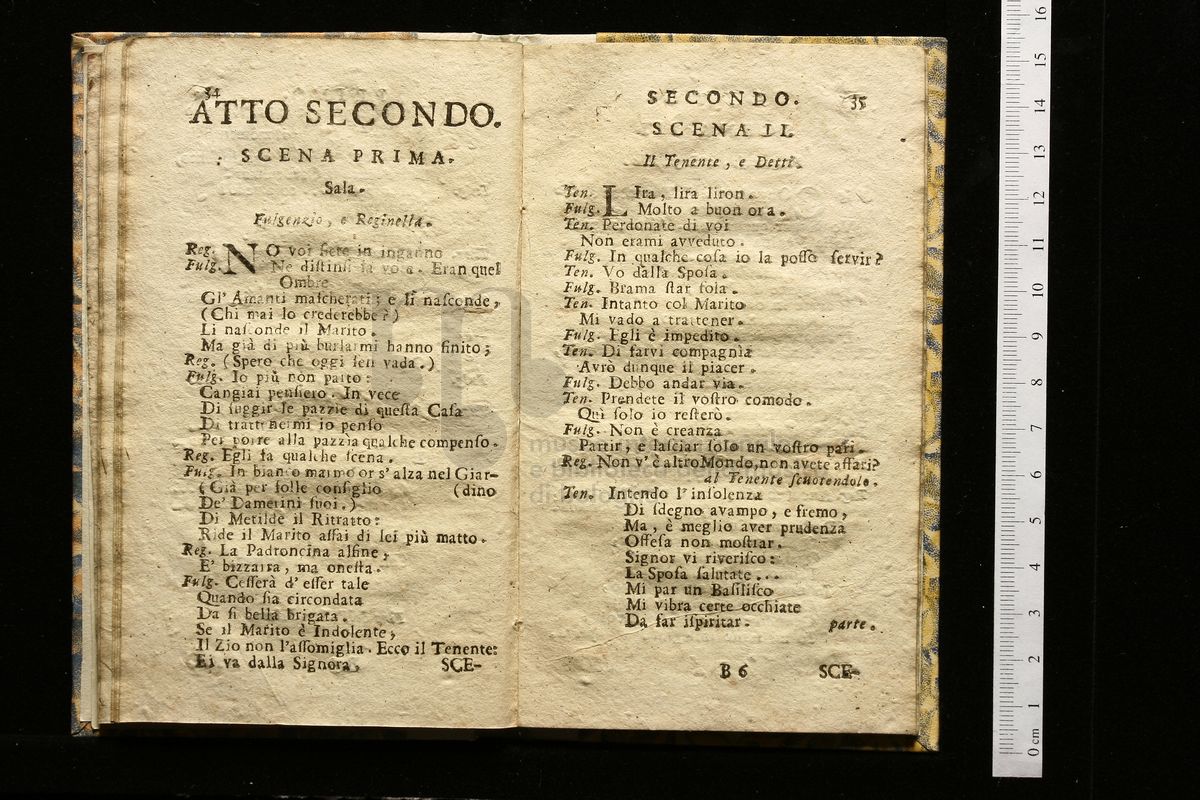 34
ATTO SECONDO.
SCENA PRIMA.
Sala.
Fulgenzio, e Reginella.
Reg. NO voi ſiete in inganno
Fulg. Ne diſtinſi la voce. Eran quel
Ombre
Gl' Amanti maſcherati; e li naſconde,
(Chi mai lo crederebbe?)
Li naſconde il Marito.
Ma già di più burlarmi hanno finito;
Reg. (Spero che oggi ſen vada.)
Fulg. Io più non parto:
Cangiai penſiero. In vece
Di fuggir le pazzie di queſta Caſa
Di trattenermi io penſo
Per porre alla pazzia qualche compenſo.
Reg. Egli fa qualche ſcena.
Fulg. In bianco marmo or s' alza nel Giar-
(Già per folle conſiglio (dino
De' Damerini ſuoi.)
Di Metilde il Ritratto:
Ride il Marito aſſai di lei più matto.
Reg. La Padroncina alfine,
E' bizzarra, ma oneſta.
Fulg. Ceſſerà d' eſſer tale
Quando ſia circondata
Da ſi bella brigata.
Se il Marito è Indolente,
Il Zio non l'aſſomiglia. Ecco il Tenente:
Ei va dalla Signora. SCE-
SECONDO. 35
SCENA II.
Il Tenente, e Detti.
Ten. LIra, lira liron.
Fulg. Molto a buon ora.
Ten. Perdonate di voi
Non erami avveduto.
Fulg. In qualche coſa io la poſſo ſervir?
Ten. Vo dalla Spoſa.
Fulg. Brama ſtar ſola.
Ten. Intanto col Marito
Mi vado a trattener.
Fulg. Egli è impedito.
Ten. Di farvi compagnìa
Avrò dunque il piacer.
Fulg. Debbo andar via.
Ten. Prendete il voſtro comodo.
Quì ſolo io reſterò.
Fulg. Non è creanza
Partir, e laſciar ſolo un voſtro pari.
Reg. Non v' è altro Mondo, non avete affari?
al Tenente ſcuotendolo.
Ten. Intendo l' inſolenza
Di ſdegno avampo, e fremo,
Ma, è meglio aver prudenza
Offeſa non moſtrar.
Signor vi riveriſco:
La Spoſa ſalutate...
Mi par un Baſiliſco
Mi vibra certe occhiate
Da far iſpiritar. parte.
B 6 SCE-